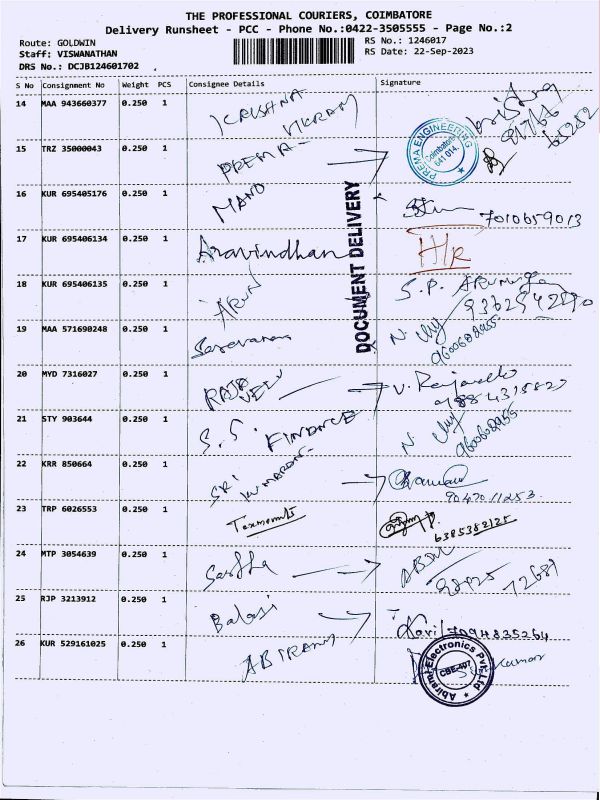 THE PROFESSIONAL COURIERS, COIMBATORE
Delivery Runsheet - PCC - Phone No.:0422-3505555 - Page No.:2
Route: GOLDWIN
RS No.: 1246017
Staff: VISWANATHAN
RS Date: 22-Sep-2023
DRS No.: DCJB124601702
S No Consignment No Weight PCS Consignee Details Signature
14 MAA 943660377 0.250 1 KRISHNA
VIKRAM
15 TRZ 35000043 0.250 1 PREMA
PREMA ENGINEERING
Coimbatore
641 014.
16 KUR 695405176 0.250 1 MANO 7010659013
17 KUR 695406134 0.250 1 Aravindhan HR
DOCUMENT DELIVERY
18 KUR 695406135 0.250 1 ARUN S.P. ARUMUGA
9362542890
19 MAA 571690248 0.250 1 Saravanan
9600602955
20 MYD 7316027 0.250 1 RAJA
VELU
9884315820
21 STY 903644 0.250 1 S.S. FINANCE
9600602955
22 KRR 850664 0.250 1 SRI
KUMARAN
90470 11253
23 TRP 6026553 0.250 1
6385382125
24 MTP 3054639 0.250 1 Sastha
98425 72689
25 RJP 3213912 0.250 1 Balaji
7094835264
26 KUR 529161025 0.250 1 ABIRAMI
Abirami Electronics Pvt Ltd
CBE-407